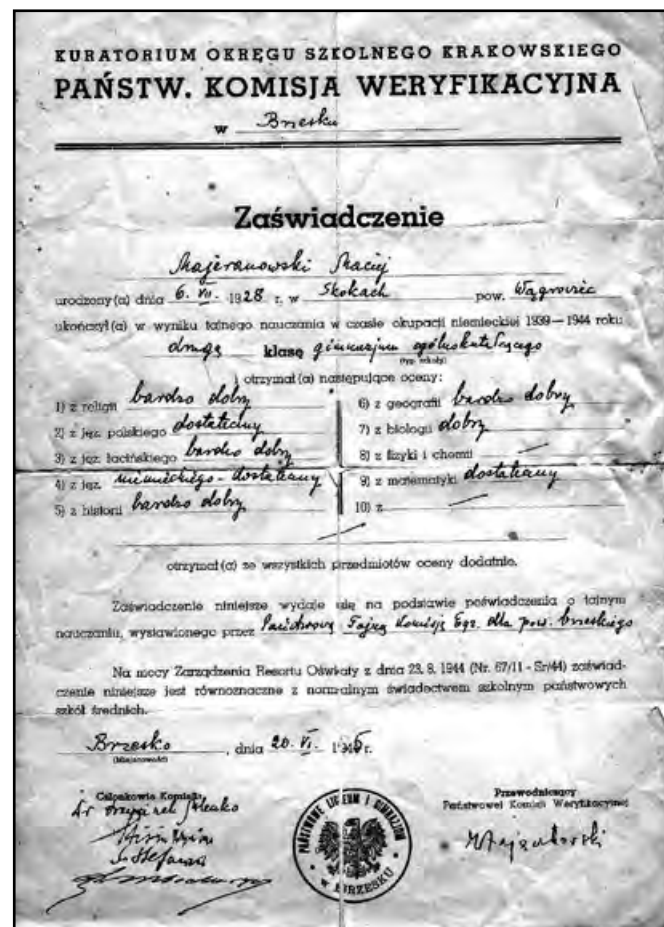 KURATORIUM OKRĘGU SZKOLNEGO KRAKOWSKIEGO
PAŃSTW. KOMISJA WERYFIKACYJNA
w Brzesku
Zaświadczenie
Majeranowski Maciej
urodzony(a) dnia 6. VII. 1928 r. w Skokach pow. Wągrowiec
ukończył(a) w wyniku tajnego nauczania w czasie okupacji niemieckiej 1939—1944 roku:
drugą klasę gimnazjum ogólnokształcącego
(typ szkoły)
otrzymał(a) następujące oceny:
1) z religii bardzo dobry
2) z jęz. polskiego dostateczny
3) z jęz. łacińskiego bardzo dobry
4) z jęz. niemieckiego - dostateczny
5) z historii bardzo dobry
6) z geografii bardzo dobry
7) z biologii dobry
8) z fizyki i chemii
9) z matematyki dostateczny
10) z
otrzymał(a) ze wszystkich przedmiotów oceny dodatnie.
Zaświadczenie niniejsze wydaje się na podstawie poświadczenia o tajnym
nauczaniu, wystawionego przez Państwową Tajną Komisję Egz. dla pow. brzeskiego
Na mocy Zarządzenia Resortu Oświaty z dnia 23. 8. 1944 (Nr. 67/11 - Sr/44) zaświad-
czenie niniejsze jest równoznaczne z normalnym świadectwem szkolnym państwowych
szkół średnich.
Brzesko, dnia 20. VI. 1945 r.
(Miejscowość)
Członkowie Komisji:
Przewodniczący
Państwowej Komisji Weryfikacyjnej
PAŃSTWOWE LICEUM I GIMNAZJUM
W BRZESKU